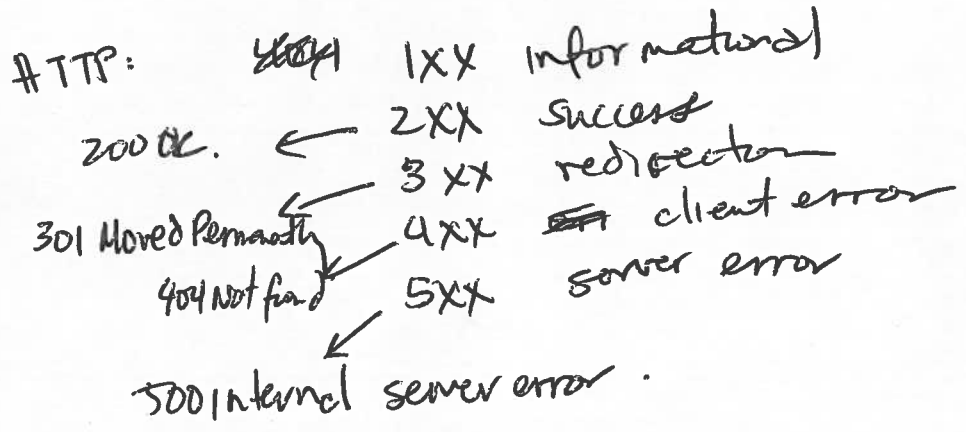 HTTP: 1xx informational
200 OK. 2xx success
3xx redirection
301 Moved Permanently 4xx client error
404 Not found 5xx server error
500 internal server error.